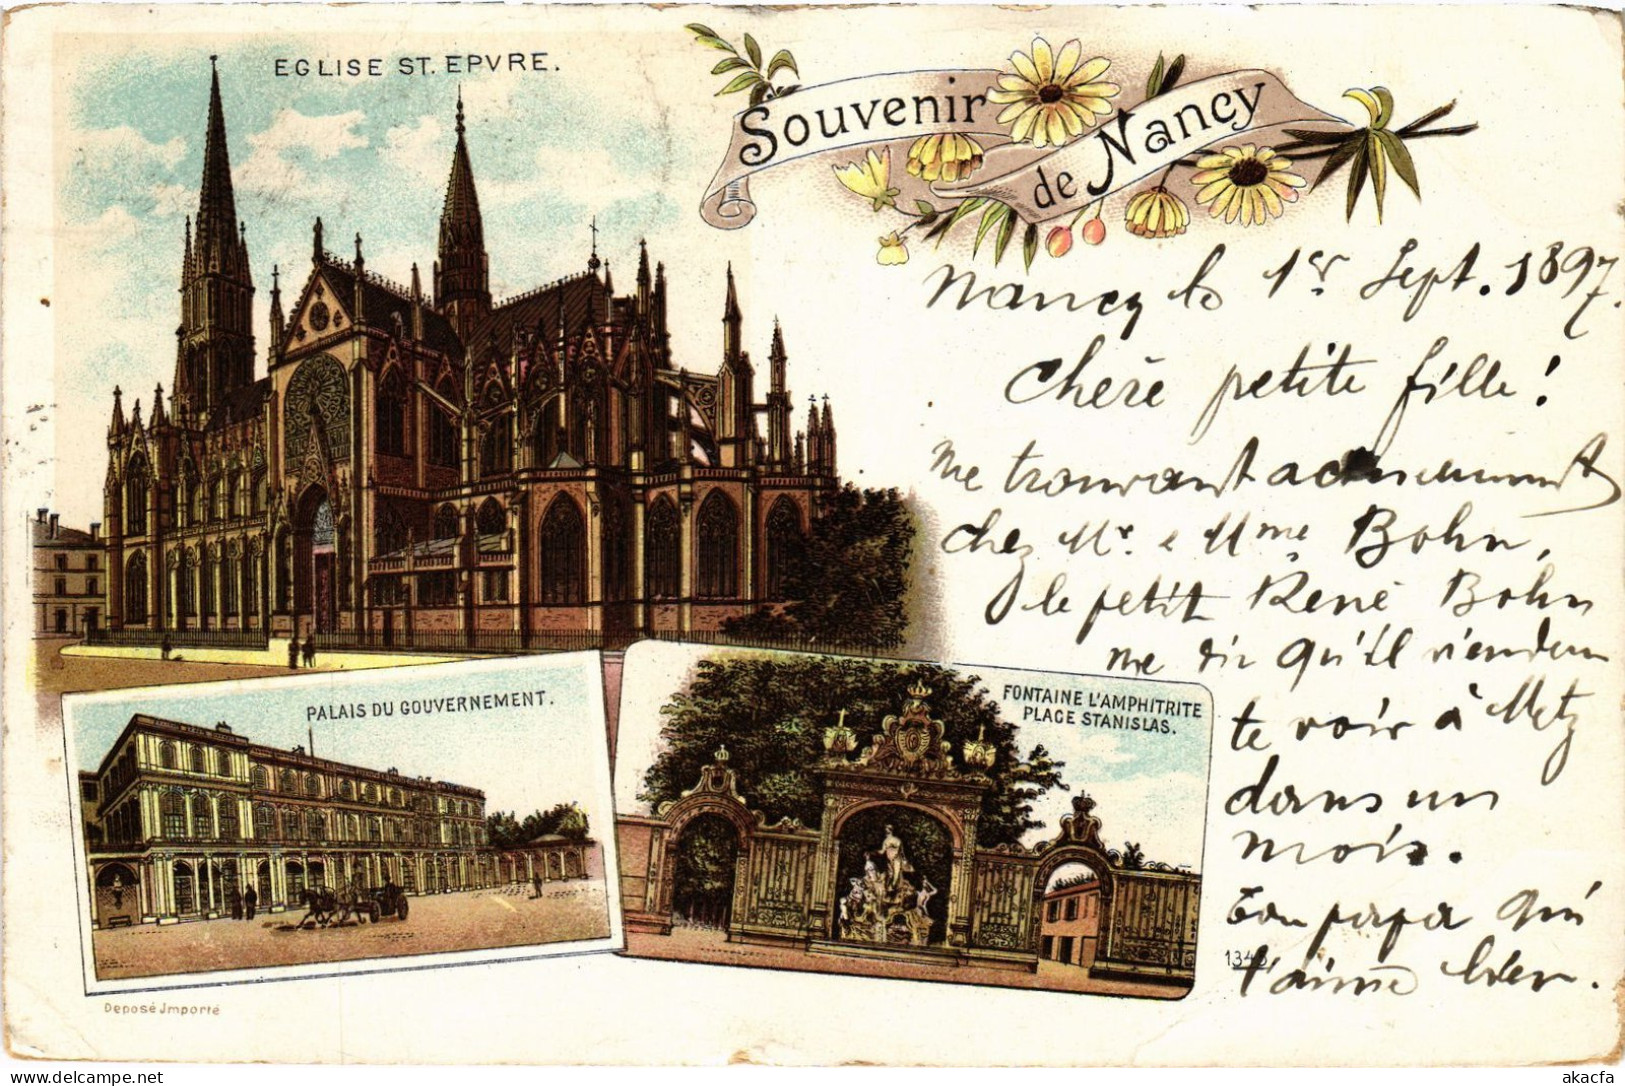 EGLISE ST. EPVRE.
Souvenir
de Nancy
Nancy le 1er Sept. 1897.
Chère petite fille!
me trouvant actuellement
chez Mr. e Mme Bohn,
le petit René Bohn
me dit qu'il viendra
te voir à Metz
dans un
mois.
Ton papa qui
t'aime bien.
PALAIS DU GOUVERNEMENT.
FONTAINE L'AMPHITRITE
PLACE STANISLAS.
1348
Deposé Importé
akacfa